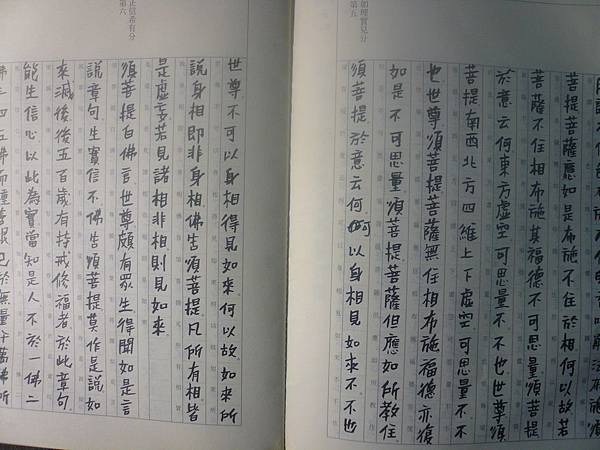 所謂不住色布施不住聲香味觸法布施須
菩提菩薩應如是布施不住於相何以故若
菩薩不住相布施其福德不可思量須菩提
於意云何東方虛空可思量不不也世尊須
菩提南西北方四維上下虛空可思量不不
也世尊須菩提菩薩無住相布施福德亦復
如是不可思量須菩提菩薩但應如所教住
如理實見分
第五
須菩提於意云何可以身相見如來不不也
世尊不可以身相得見如來何以故如來所
說身相即非身相佛告須菩提凡所有相皆
是虛妄若見諸相非相則見如來
正信希有分
第六
須菩提白佛言世尊頗有眾生得聞如是言
說章句生實信不佛告須菩提莫作是說如
來滅後後五百歲有持戒修福者於此章句
能生信心以此為實當知是人不於一佛二
佛三四五佛而種善根已於無量千萬佛所